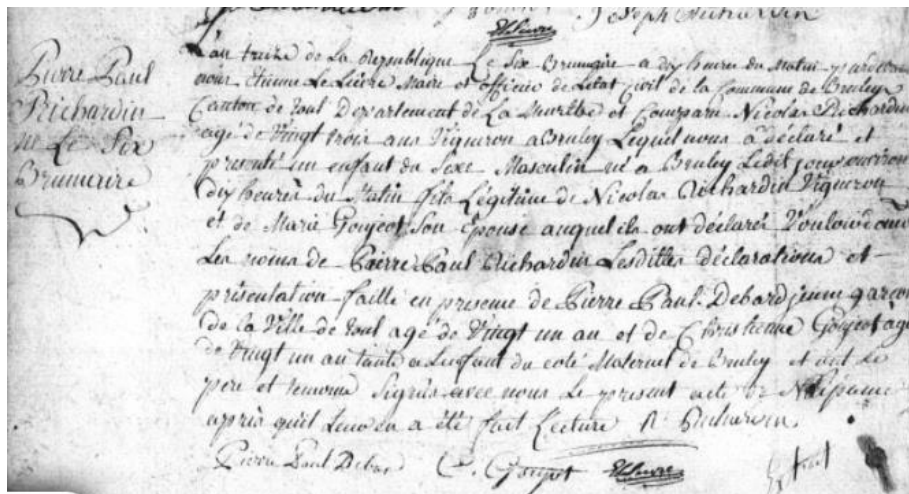 Joseph Richardin
Pierre Paul
Richardin
né Le Six
Brumaire
L'an treize de La Republique Le Six Brumaire a dix heures du Matin pardevant
nous Etienne Le Lievre Maire et officier de L'etat civil de la Commune de Bruley
Canton de toul Departement de La Meurthe est Comparu Nicolas Richardin
agé de Vingt trois ans Vigneron a Bruley Lequel nous a déclaré et
présenté un enfant du Sexe Masculin né a Bruley Ledit jour environ
dix heures du Matin fils Légitime de Nicolas Richardin Vigneron
et de Marie Goujeot Son épouse auquel ils ont déclarés Vouloir donner
Les noms de Pierre Paul Richardin Lesdittes déclarations et
présentation faitte en presence de Pierre Paul Debard jeune garçon
de la Ville de toul agé de Vingt un an et de Christienne Goujeot agé
de Vingt un an tante a L'enfant du coté Maternel de Bruley et ont Le
pere et temoins Signés avec nous Le present acte de Naissance
après quil Leur en a été fait Lecture N Richardin
Pierre Paul Debard C. Goujot
Extrait